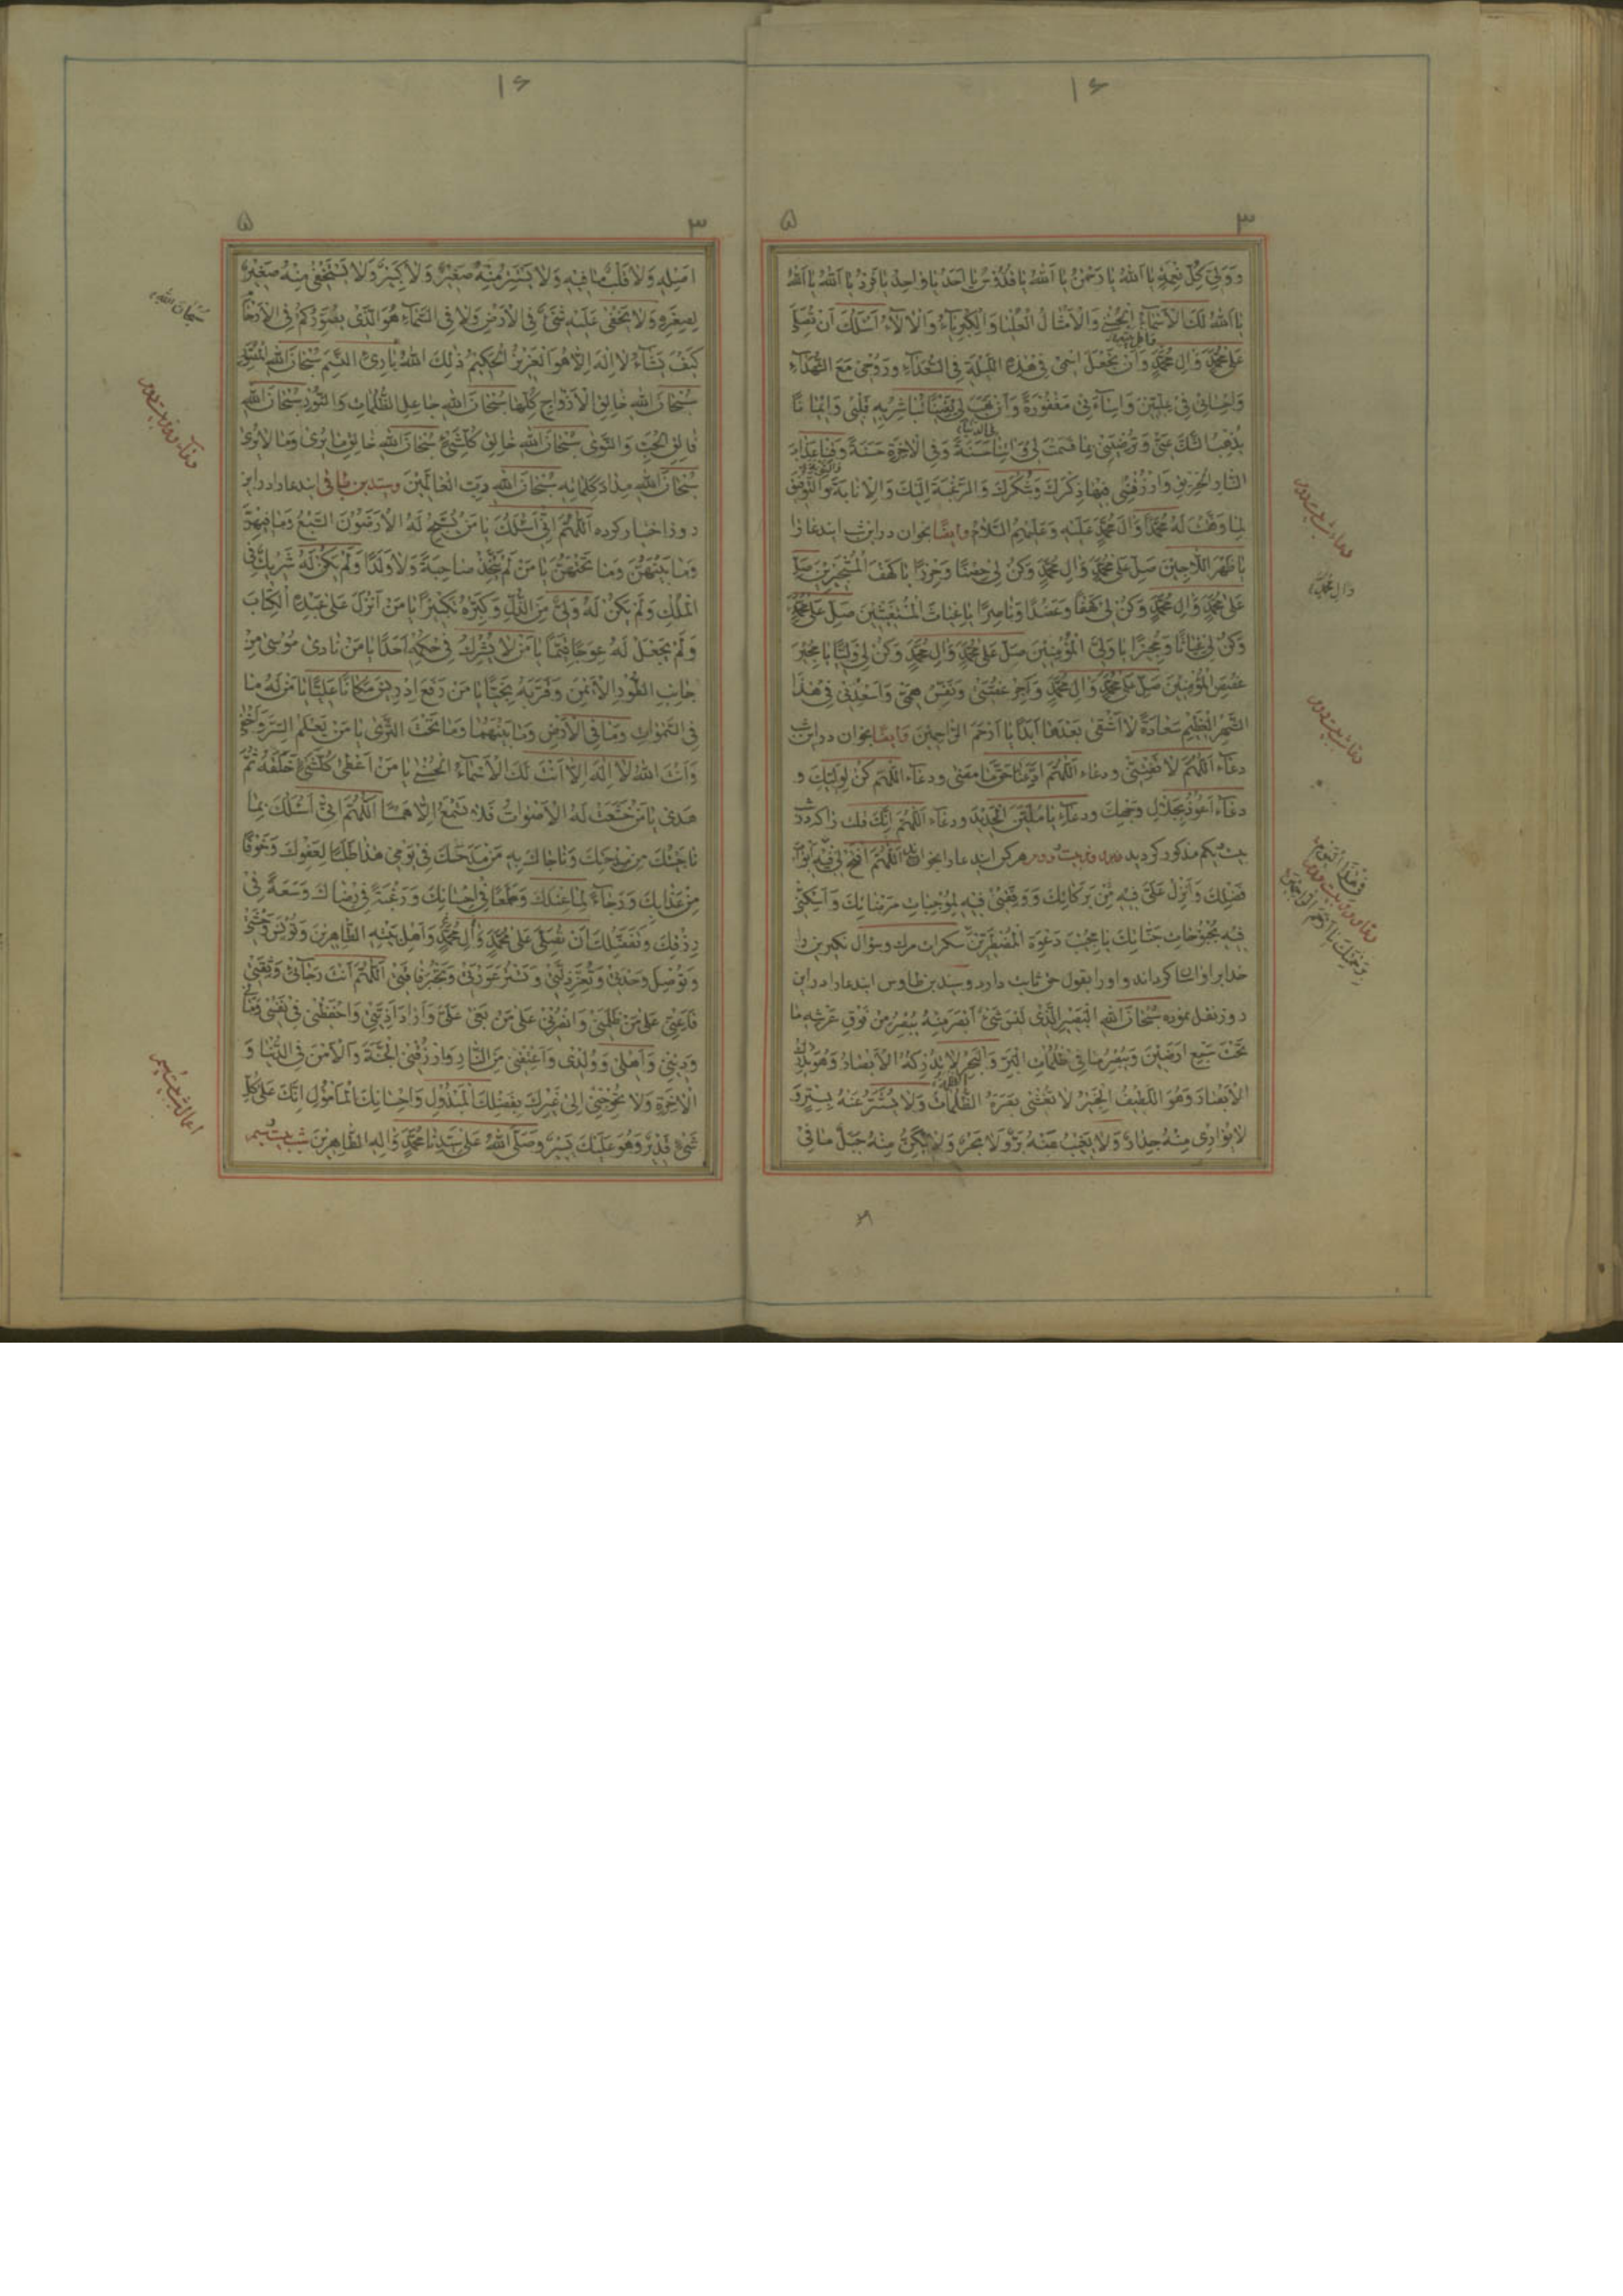 ۱۶
۳ ۵
وَوَلِيَّ كُلِّ نِعْمَةٍ يَا اَللّٰهُ يَا رَحْمٰنُ يَا اَللّٰهُ يَا قُدُّوسُ يَا اَحَدُ يَا وَاحِدُ يَا فَرْدُ يَا اَللّٰهُ يَا اَللّٰهُ
يَا اَللّٰهُ لَكَ الْاَسْمَآءُ الْحُسْنٰى وَالْاَمْثَالُ الْعُلْيَا وَالْكِبْرِيَآءُ وَالْاٰلَآءُ اَسْئَلُكَ اَنْ تُصَلِّيَ
عَلٰى مُحَمَّدٍ وَاٰلِ مُحَمَّدٍ وَاَنْ تَجْعَلَ اسْمِي فِي هٰذِهِ اللَّيْلَةِ فِي السُّعَدَآءِ وَرُوحِي مَعَ الشُّهَدَآءِ
وَاِحْسَانِي فِي عِلِّيِّينَ وَاِسَآءَتِي مَغْفُورَةً وَاَنْ تَهَبَ لِي يَقِينًا تُبَاشِرُ بِهِ قَلْبِي وَاِيمَانًا
يُذْهِبُ الشَّكَّ عَنِّي وَتُرْضِيَنِي بِمَا قَسَمْتَ لِي وَاٰتِنَا حَسَنَةً وَفِي الْاٰخِرَةِ حَسَنَةً وَقِنَا عَذَابَ
النَّارِ الْحَرِيقِ وَارْزُقْنِي فِيهَا ذِكْرَكَ وَشُكْرَكَ وَالرَّغْبَةَ اِلَيْكَ وَالْاِنَابَةَ وَالتَّوْفِيقَ
لِمَا وَفَّقْتَ لَهُ مُحَمَّدًا وَاٰلَ مُحَمَّدٍ عَلَيْهِ وَعَلَيْهِمُ السَّلَامُ وايضًا بخوان در اين شب ايندعا را
يَا ظَهْرَ اللَّاجِينَ صَلِّ عَلٰى مُحَمَّدٍ وَاٰلِ مُحَمَّدٍ وَكُنْ لِي حِصْنًا وَحِرْزًا يَا كَهْفَ الْمُسْتَجِيرِينَ صَلِّ
عَلٰى مُحَمَّدٍ وَاٰلِ مُحَمَّدٍ وَكُنْ لِي كَهْفًا وَعَضُدًا وَنَاصِرًا يَا غِيَاثَ الْمُسْتَغِيثِينَ صَلِّ عَلٰى مُحَمَّدٍ
وَكُنْ لِي غِيَاثًا وَمُجِيرًا يَا وَلِيَّ الْمُؤْمِنِينَ صَلِّ عَلٰى مُحَمَّدٍ وَاٰلِ مُحَمَّدٍ وَكُنْ لِي وَلِيًّا يَا مُجِيرَ
غُصَصِ الْمُؤْمِنِينَ صَلِّ عَلٰى مُحَمَّدٍ وَاٰلِ مُحَمَّدٍ وَاَجِرْ غُصَّتِي وَنَفِّسْ هَمِّي وَاَسْعِدْنِي فِي هٰذَا
الشَّهْرِ الْعَظِيمِ سَعَادَةً لَا اَشْقٰى بَعْدَهَا اَبَدًا يَا اَرْحَمَ الرَّاحِمِينَ وايضًا بخوان در اين شب
دعآء اَللّٰهُمَّ لَا تُفَتِّشْنِي ودعاء اَللّٰهُمَّ ودعآء اَللّٰهُمَّ كُنْ لِوَلِيِّكَ و
دعآء اَعُوذُ بِجَلَالِ وَجْهِكَ ودعآء يَا مُلَيِّنَ الْحَدِيدِ ودعآء اَللّٰهُمَّ اِنَّكَ قُلْتَ را كه در شب
بيست يكم مذكور كرديد هر كس ايندعا را بخواند اَللّٰهُمَّ افْتَحْ لِي فِيهِ اَبْوَابَ
فَضْلِكَ وَاَنْزِلْ عَلَيَّ فِيهِ مِنْ بَرَكَاتِكَ وَوَفِّقْنِي فِيهِ لِمُوجِبَاتِ مَرْضَاتِكَ وَاَسْكِنِّي
فِيهِ بُحْبُوحَاتِ جَنَّاتِكَ يَا مُجِيبَ دَعْوَةِ الْمُضْطَرِّينَ سكرات مرك وسؤال نكيرين را
خدا بر او اسان كرداند و او را بقول حق ثابت دارد وسيد بن طاوس ايندعا را در اين
روز نقل نموده سُبْحَانَ اللّٰهِ الْبَصِيرِ الَّذِي لَيْسَ شَيْءٌ اَبْصَرَ مِنْهُ يُبْصِرُ مِنْ فَوْقِ عَرْشِهِ مَا
تَحْتَ سَبْعِ اَرَضِينَ وَيُبْصِرُ مَا فِي ظُلُمَاتِ الْبَرِّ وَالْبَحْرِ لَا تُدْرِكُهُ الْاَبْصَارُ وَهُوَ يُدْرِكُ
الْاَبْصَارَ وَهُوَ اللَّطِيفُ الْخَبِيرُ لَا تَغْشٰى بَصَرَهُ الظُّلُمَاتُ وَلَا يُسْتَتَرُ عَنْهُ بِسِتْرٍ وَ
لَا يُوَارِي مِنْهُ جِدَارٌ وَلَا يَغِيبُ عَنْهُ بَرٌّ وَلَا بَحْرٌ وَلَا يَكُنُّ مِنْهُ جَبَلٌ مَا فِي
وَاٰلِ مُحَمَّدٍ
۱۶
۳ ۵
اَصْلِهِ وَلَا قَلْبٌ مَا فِيهِ وَلَا يَسْتَتِرُ مِنْهُ صَغِيرٌ وَلَا كَبِيرٌ وَلَا يَسْتَخْفِي مِنْهُ صَغِيرٌ
لِصِغَرِهِ وَلَا يَخْفٰى عَلَيْهِ شَيْءٌ فِي الْاَرْضِ وَلَا فِي السَّمَآءِ هُوَ الَّذِي يُصَوِّرُكُمْ فِي الْاَرْحَامِ
كَيْفَ يَشَآءُ لَا اِلٰهَ اِلَّا هُوَ الْعَزِيزُ الْحَكِيمُ ذٰلِكَ اللّٰهُ بَارِئِ النَّسَمِ سُبْحَانَ اللّٰهِ الْمُصَوِّرِ
سُبْحَانَ اللّٰهِ خَالِقِ الْاَزْوَاجِ كُلِّهَا سُبْحَانَ اللّٰهِ جَاعِلِ الظُّلُمَاتِ وَالنُّورِ سُبْحَانَ اللّٰهِ
فَالِقِ الْحَبِّ وَالنَّوٰى سُبْحَانَ اللّٰهِ خَالِقِ كُلِّ شَيْءٍ سُبْحَانَ اللّٰهِ خَالِقِ مَا يُرٰى وَمَا لَا يُرٰى
سُبْحَانَ اللّٰهِ مِدَادَ كَلِمَاتِهِ سُبْحَانَ اللّٰهِ رَبِّ الْعَالَمِينَ وسيد بن باقى ايندعا را در اين
روز اختيار كرده اَللّٰهُمَّ اِنِّي اَسْئَلُكَ يَا مَنْ يُسَبِّحُ لَهُ الْاَرَضُونَ السَّبْعُ وَمَا فِيهِنَّ
وَمَا بَيْنَهُنَّ وَمَا تَحْتَهُنَّ يَا مَنْ لَمْ يَتَّخِذْ صَاحِبَةً وَلَا وَلَدًا وَلَمْ يَكُنْ لَهُ شَرِيكٌ فِي
الْمُلْكِ وَلَمْ يَكُنْ لَهُ وَلِيٌّ مِنَ الذُّلِّ وَكَبِّرْهُ تَكْبِيرًا يَا مَنْ اَنْزَلَ عَلٰى عَبْدِهِ الْكِتَابَ
وَلَمْ يَجْعَلْ لَهُ عِوَجًا قَيِّمًا يَا مَنْ لَا يُشْرِكُ فِي حُكْمِهِ اَحَدًا يَا مَنْ نَادٰى مُوسٰى مِنْ
جَانِبِ الطُّورِ الْاَيْمَنِ وَقَرَّبَهُ نَجِيًّا يَا مَنْ رَفَعَ اِدْرِيسَ مَكَانًا عَلِيًّا يَا مَنْ لَهُ مَا
فِي السَّمٰوَاتِ وَمَا فِي الْاَرْضِ وَمَا بَيْنَهُمَا وَمَا تَحْتَ الثَّرٰى يَا مَنْ يَعْلَمُ السِّرَّ وَاَخْفٰى
وَاَنْتَ اللّٰهُ لَا اِلٰهَ اِلَّا اَنْتَ لَكَ الْاَسْمَآءُ الْحُسْنٰى يَا مَنْ اَعْطٰى كُلَّ شَيْءٍ خَلْقَهُ ثُمَّ
هَدٰى يَا مَنْ خَشَعَتْ لَهُ الْاَصْوَاتُ فَلَا تَسْمَعُ اِلَّا هَمْسًا اَللّٰهُمَّ اِنِّي اَسْئَلُكَ بِمَا
نَاجَيْتُكَ مِنْ مِدْحَتِكَ وَنَاجَاكَ بِهِ مَنْ مَدَحَكَ فِي يَوْمِي هٰذَا طَلَبًا لِعَفْوِكَ وَخَوْفًا
مِنْ عَذَابِكَ وَرَجَآءً لِمَا عِنْدَكَ وَطَمَعًا فِي اِحْسَانِكَ وَرَغْبَةً فِي رِضَاكَ وَسَعَةً فِي
رِزْقِكَ وَتَفَضُّلِكَ اَنْ تُصَلِّيَ عَلٰى مُحَمَّدٍ وَاٰلِ مُحَمَّدٍ وَاَهْلِ بَيْتِهِ الطَّاهِرِينَ وَتُؤْنِسَ وَحْشَتِي
وَتُوصِلَ وَحْدَتِي وَتُعِزَّ ذِلَّتِي وَتَسْتُرَ عَوْرَتِي وَتَجْبُرَ فَاقَتِي اَللّٰهُمَّ اَنْتَ رَجَآئِي وَثِقَتِي
فَاَعِنِّي عَلٰى مَنْ ظَلَمَنِي وَانْصُرْنِي عَلٰى مَنْ بَغٰى عَلَيَّ وَاَرَادَ اَذِيَّتِي وَاحْفَظْنِي فِي نَفْسِي وَمَالِي
وَدِينِي وَاَهْلِي وَوُلْدِي وَاَعْتِقْنِي مِنَ النَّارِ وَارْزُقْنِي الْجَنَّةَ وَالْاَمْنَ فِي الدُّنْيَا وَ
الْاٰخِرَةِ وَلَا تُحْوِجْنِي اِلٰى غَيْرِكَ بِفَضْلِكَ الْمَبْذُولِ وَاِحْسَانِكَ الْمَأْمُولِ اِنَّكَ عَلٰى كُلِّ
شَيْءٍ قَدِيرٌ وَهُوَ عَلَيْكَ يَسِيرٌ وَصَلَّى اللّٰهُ عَلٰى سَيِّدِنَا مُحَمَّدٍ وَاٰلِهِ الطَّاهِرِينَ شب بيست سيم
سُبْحَانَ اللّٰهِ
اعمال شب بيست سيم